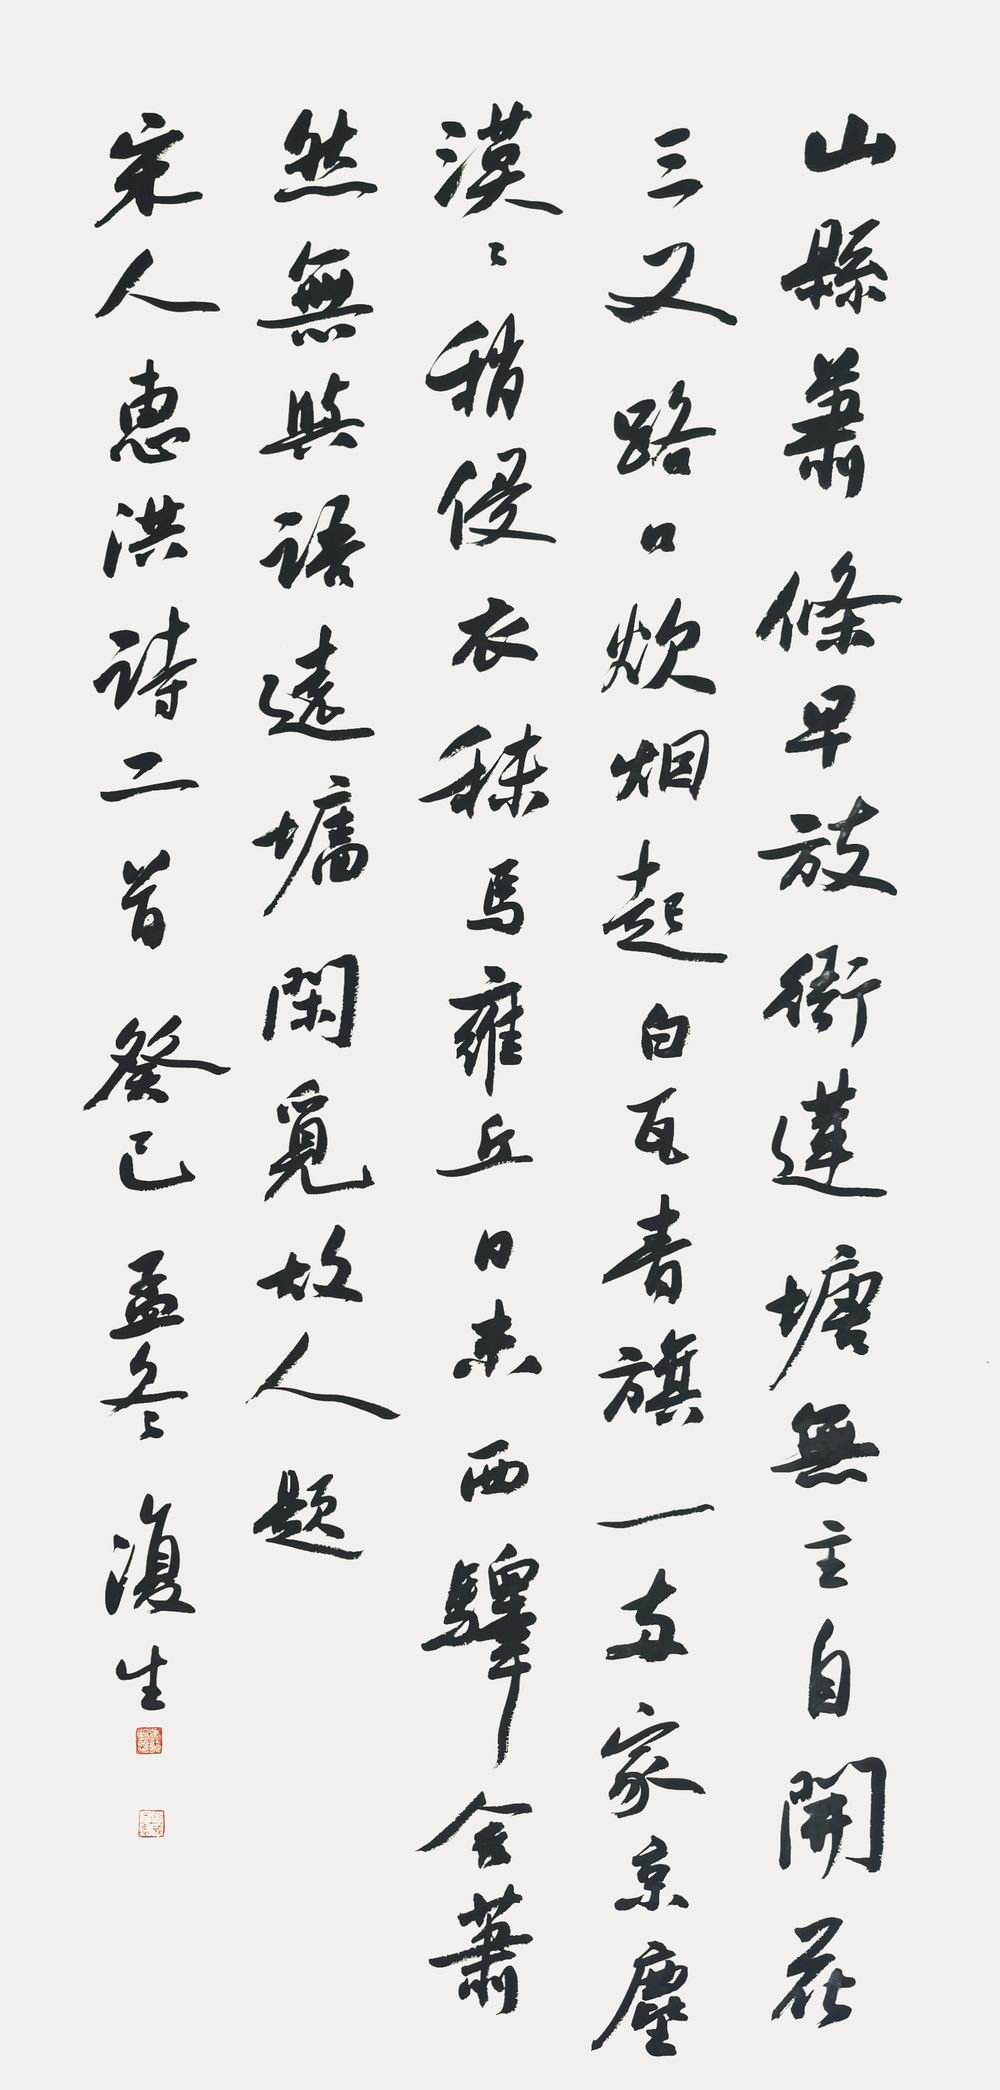 山縣蕭條早放衙蓮塘無主自開花
三又路口炊烟起白瓦青旗一两家京塵
漠〻稍侵衣秣馬雍丘日未西驛舍蕭
然無與語遠墻閑覓故人題
宋人惠洪詩二首癸巳孟冬復生